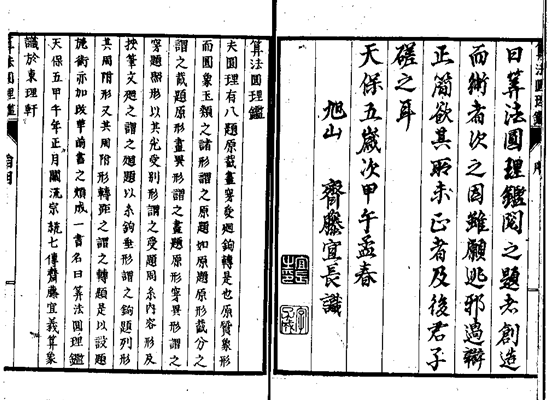 曰算法圓理鑑閲之題者創造
而術者次之因雖願逃邪過辯
正簡欲其所未正者及後君子
磋之耳
天保五歲次甲午孟春
旭山 齊藤宜長識
算法圓理鑑
夫圓理有八題原截畫穿受廻鉤轉是也原質象形
而圓象玉類之諸形謂之原題如原題原形截分之
謂之截題原形畫異形謂之畫題原形穿異形謂之
穿題形以其先受別形謂之受題周糸内容形及
挾筆文廻之謂之廻題以糸鉤垂形謂之鉤題列形
其周附形又其周附形轉距之謂之轉題是以設題
施術亦加以前書之類成一書名曰算法圓理鑑
識於東理軒
天保五甲午年正月關流宗統七傳齊藤宜義算象